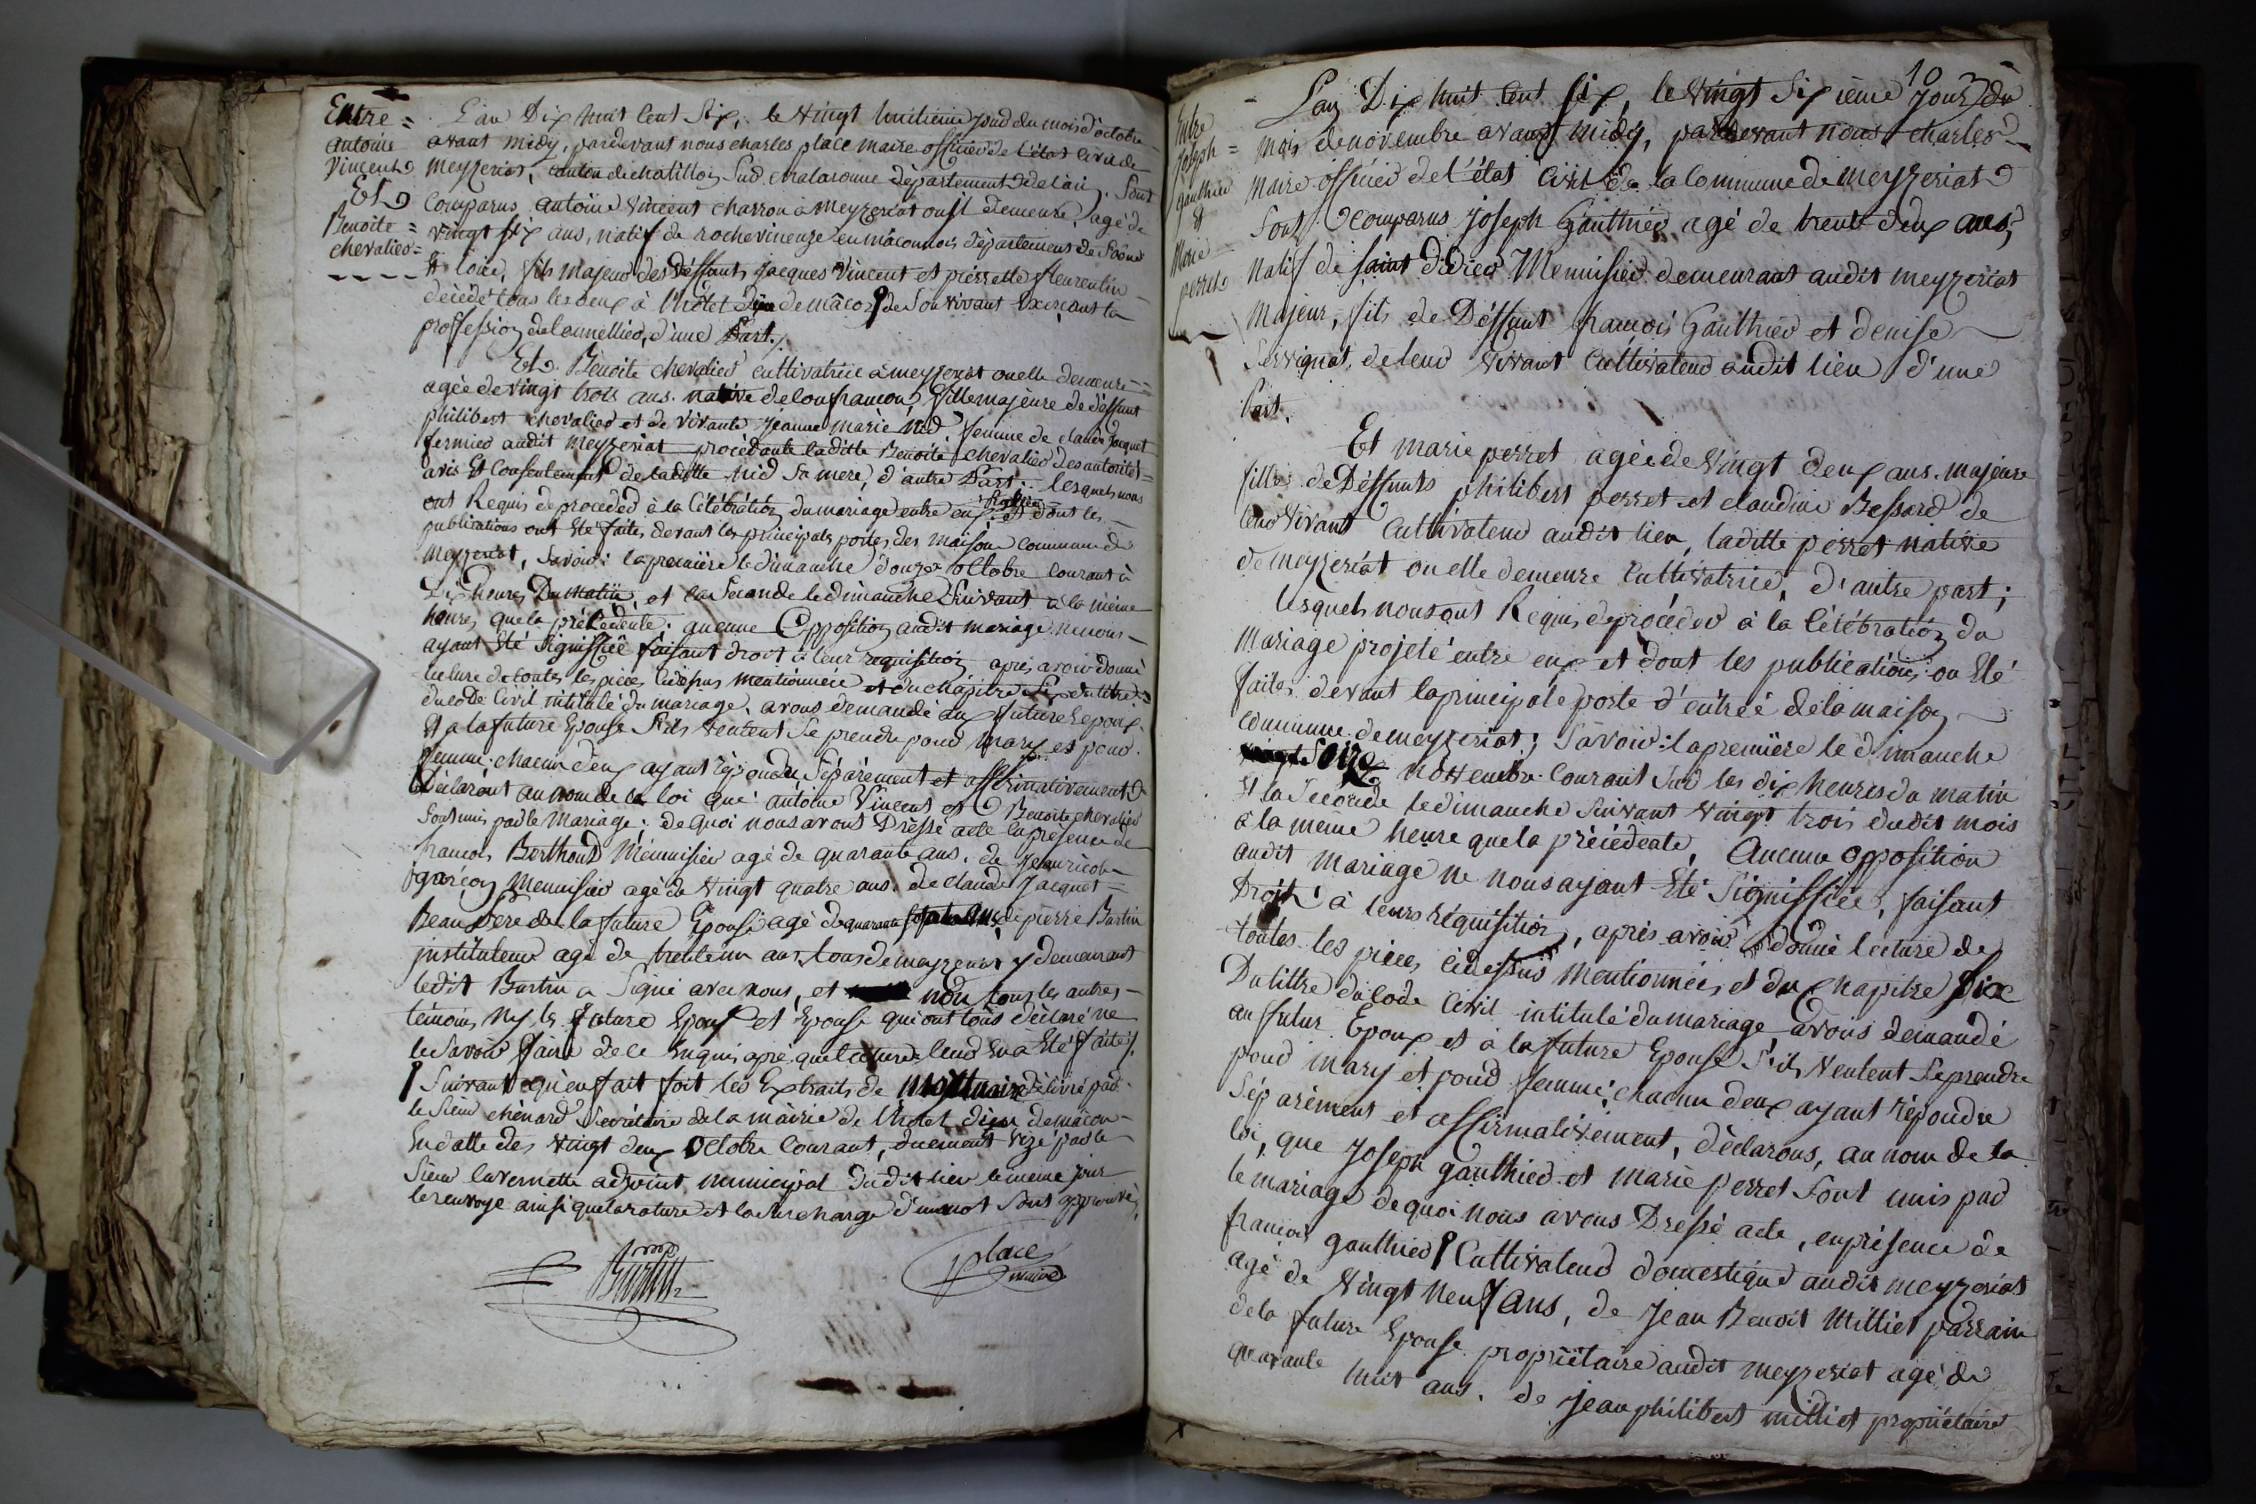 Entre =
antoine
Vincent
Et
Benoite =
chevalier =
L'an Dix huit Cent Six, le vingt huitième jour du mois d'octobre
avant midy, pardevant nous charles place maire officier de l'état civil de
meyzeriat, canton de chatillon Sur chalaronne département de l'ain. Sont
Comparus antoine vincent charron à meyzeriat ou il demeure, agé de
vingt Six ans, natif de rochevineuze en mâconnois département de Saône
et loire, fils majeur des déffunts jacques Vincent et pierrette fleurentin
décédé tous les deux à l'hôtel dieu de mâcon de Son vivant Exerçant la
proffession de tonnellier, d'une Part.
Et Benoite chevalier cultivatrice à meyzeriat ou elle demeure =
agée de vingt trois ans. native de confrancon, fille majeure de déffunt
philibert chevalier et de vivante jeanne marie Nid femme de claude jacquet
fermier audit meyzeriat procèdante laditte Benoite chevalier des autorités =
avis Et Consentement de laditte Nid Sa mere, d'autre Part; lesquels nous
ont Requis de proceder à la Célébration du mariage entre eux et dont les
publications ont Eté faites devant les principales portes des maison commune de
meyzeriat, Savoir: la première le dimanche douze octobre courant à
Dix heures Du matin, et la Seconde le dimanche Suivant à la même
heure, que la précédente. aucune Opposition audit mariage ne nous
ayant Eté Signiffiée faisant droit à leur requisition après avoir donné
lecture de toutes les pièces cidessus mentionnées et du chapitre Six du titre =
du Code Civil intitulé du mariage, avons demandé au future Epoux
et a la future Epouse S'ils veulent Se prendre pour mary et pour
femme. chacun d'eux ayant répondu Séparément et affirmativement
Déclaront au nom de la loi que antoine Vincent et Benoite chevalier
Sont unis par le mariage; de quoi nous avons Dréssé acte en présence de
françois Berthoud Menuisier agé de quarante ans. de
garçon Menuisier agé de vingt quatre ans. de claude jacquet =
Beau père de la future Epouse agé de quarante de pierre Burtin
instituteur agé de trente un ans, tous de meyzeriat y demeurants
ledit Burtin a Signé avec nous, et non tous les autres
témoins ny les future Epoux et Epouse qui ont tous déclaré ne
le Savoir faire de ce Enquis après que lecture leur en a Eté faite.
Suivant qu'en fait foit les Extraits de mortuaire délivré par
le Sieur chénard Sécrétaire de la mairie de l'hotel dieu de mâcon
En datte des vingt deux octobre Courant, duement vizé par le
Sieur lavernette adjoint municipal dudit lieu le meme jour
le renvoye ainsi que la rature et la Surcharge d'un mot Sont approuvés,
Burtin
place
maire
10
Entre
joseph =
gauthier
et
Marie
perret
L'an Dix huit Cent Six, le vingt Sixième jour du
mois de novembre avant midy, pardevant nous charles
maire officier de l'état Civil de la Commune de meyzeriat
Sont Comparus joseph Gauthier agé de trente deux ans,
natif de saint didier Menuisier demeurant audit meyzeriat
Majeur, fils de Déffunt françois Gauthier et denise
Servignat, de leur vivant Cultivateur audit lieu d'une
Part.
Et marie perret agée de vingt deux ans. majeure
fille de Déffunts philibert perret et claudine Bessard de
leur vivant Cultivateur audit lieu, laditte perret native
de meyzeriat ou elle demeure Cultivatrice, d'autre part;
lesquels nous ont Requis de procéder à la Célébration du
mariage projeté entre eux et dont les publications on Eté
faites devant la principale porte d'entrée de la maison
commune de meyzeriat; Savoir: la première le dimanche
Seize novembre Courant Sur les dix heures du matin
et la Seconde le dimanche Suivant vingt trois dudit mois
à la même heure que la précédente, Aucune opposition
audit mariage ne nous ayant Eté Signiffiée, faisant
Droit à leurs réquisition, après avoir donné lecture de
toutes les pièces cidessus mentionnées, et du chapitre Six
Du tittre du Code Civil intitulé du mariage avons demandé
au futur Epoux et à la future Epouse S'ils veulent Se prendre
pour mary et pour femme, chacun deux ayant répondu
Séparément et affirmativement, déclarons, au nom de la
loi, que joseph gauthier et marie perret Sont unis par
le mariage de quoi nous avons Dressé acte, en présence de
francois gauthier Cultivateur domestique audit meyzeriat
agé de vingt neuf ans, de jean Benoit Milliet parrain
de la future Epouse propriétaire audit meyzeriat agé de
quarante huit ans. de jean philibert milliet propriétaire